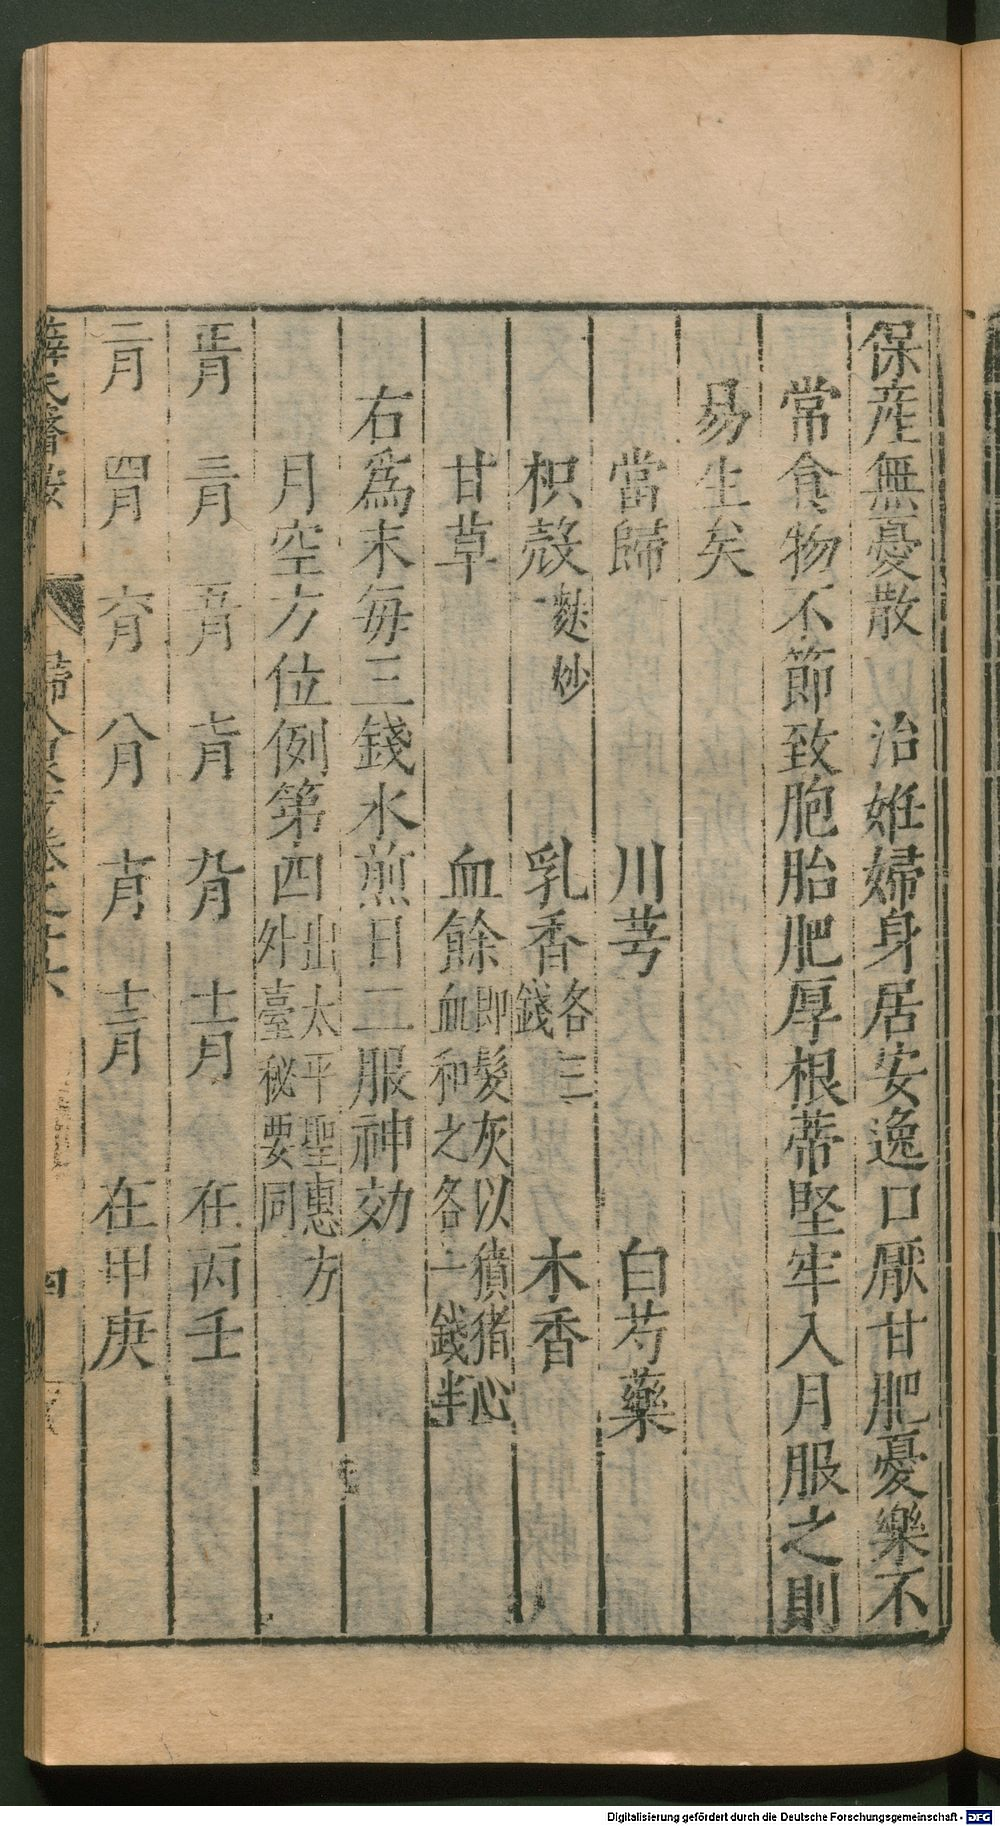 保産無憂散　治姙婦身居安逸口厭甘肥憂樂不
常食物不節致胞胎肥厚根蒂堅牢入月服之則
易生矣
當歸　川芎　白芍藥
枳殻麩炒　乳香各三錢　木香
甘草　血餘即髮灰以豶猪心血和之各一錢半
右為末毎三錢水煎日二服神効
月空方位例第四出太平聖惠方外臺秘要同
正月　三月　五月　七月　九月　十一月　在丙壬
二月　四月　六月　八月　十月　十二月　在甲庚
薛氏醫按　婦人良方卷之十六　四
Digitalisierung gefördert durch die Deutsche Forschungsgemeinschaft - DFG